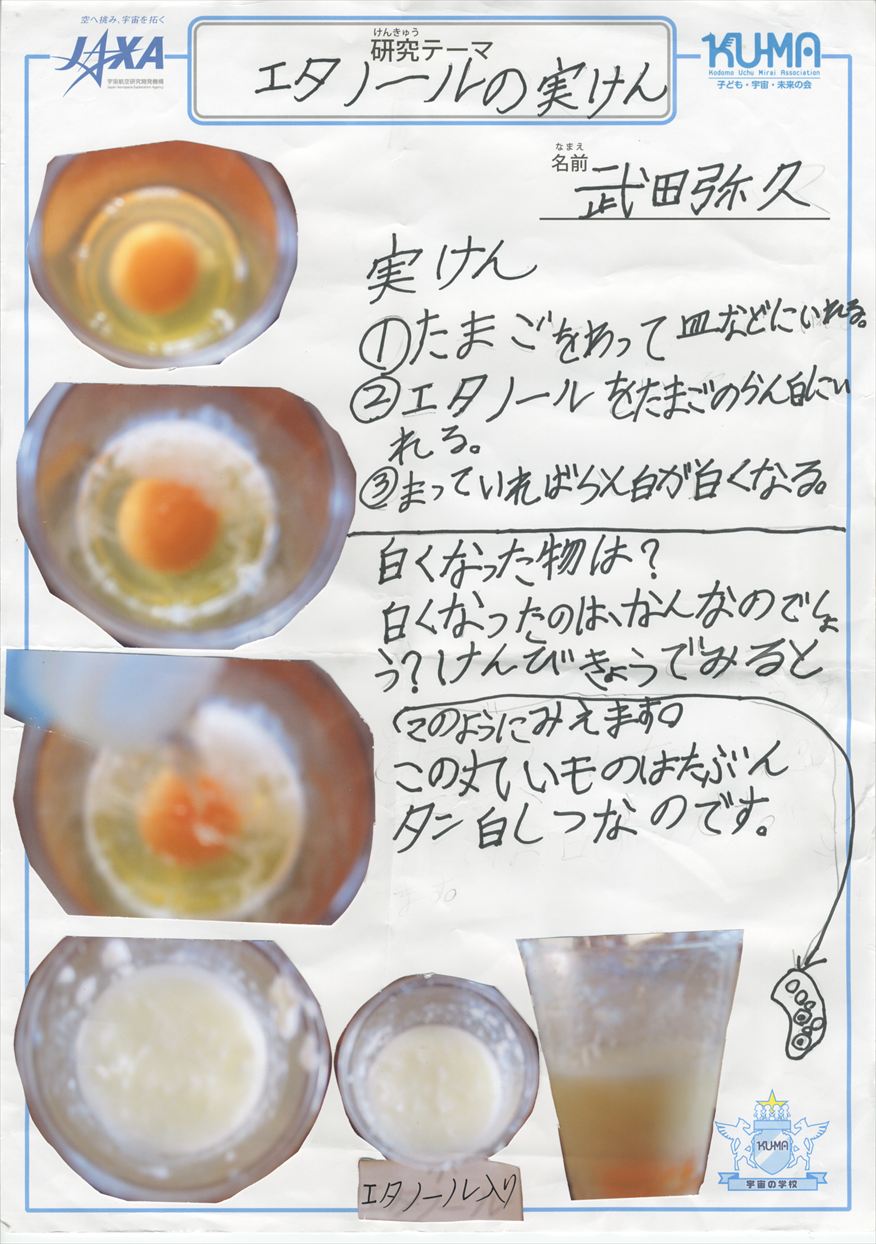 空へ挑み、宇宙を拓く
JAXA
宇宙航空研究開発機構
Japan Aerospace Exploration Agency
けんきゅう
研究テーマ
エタノールの実けん
KU-MA
Kodomo Uchu Mirai Association
子ども・宇宙・未来の会
なまえ
名前
武田弥久
実けん
①たまごをわって皿などにいれる。
②エタノールをたまごのらん白にい
れる。
③まっていればらん白が白くなる。
白くなった物は?
白くなったのは、なんなのでしょ
う?けんびきょうでみると
このようにみえます。
この丸いものはたぶん
タン白しつなのです。
エタノール入り
KU-MA
宇宙の学校